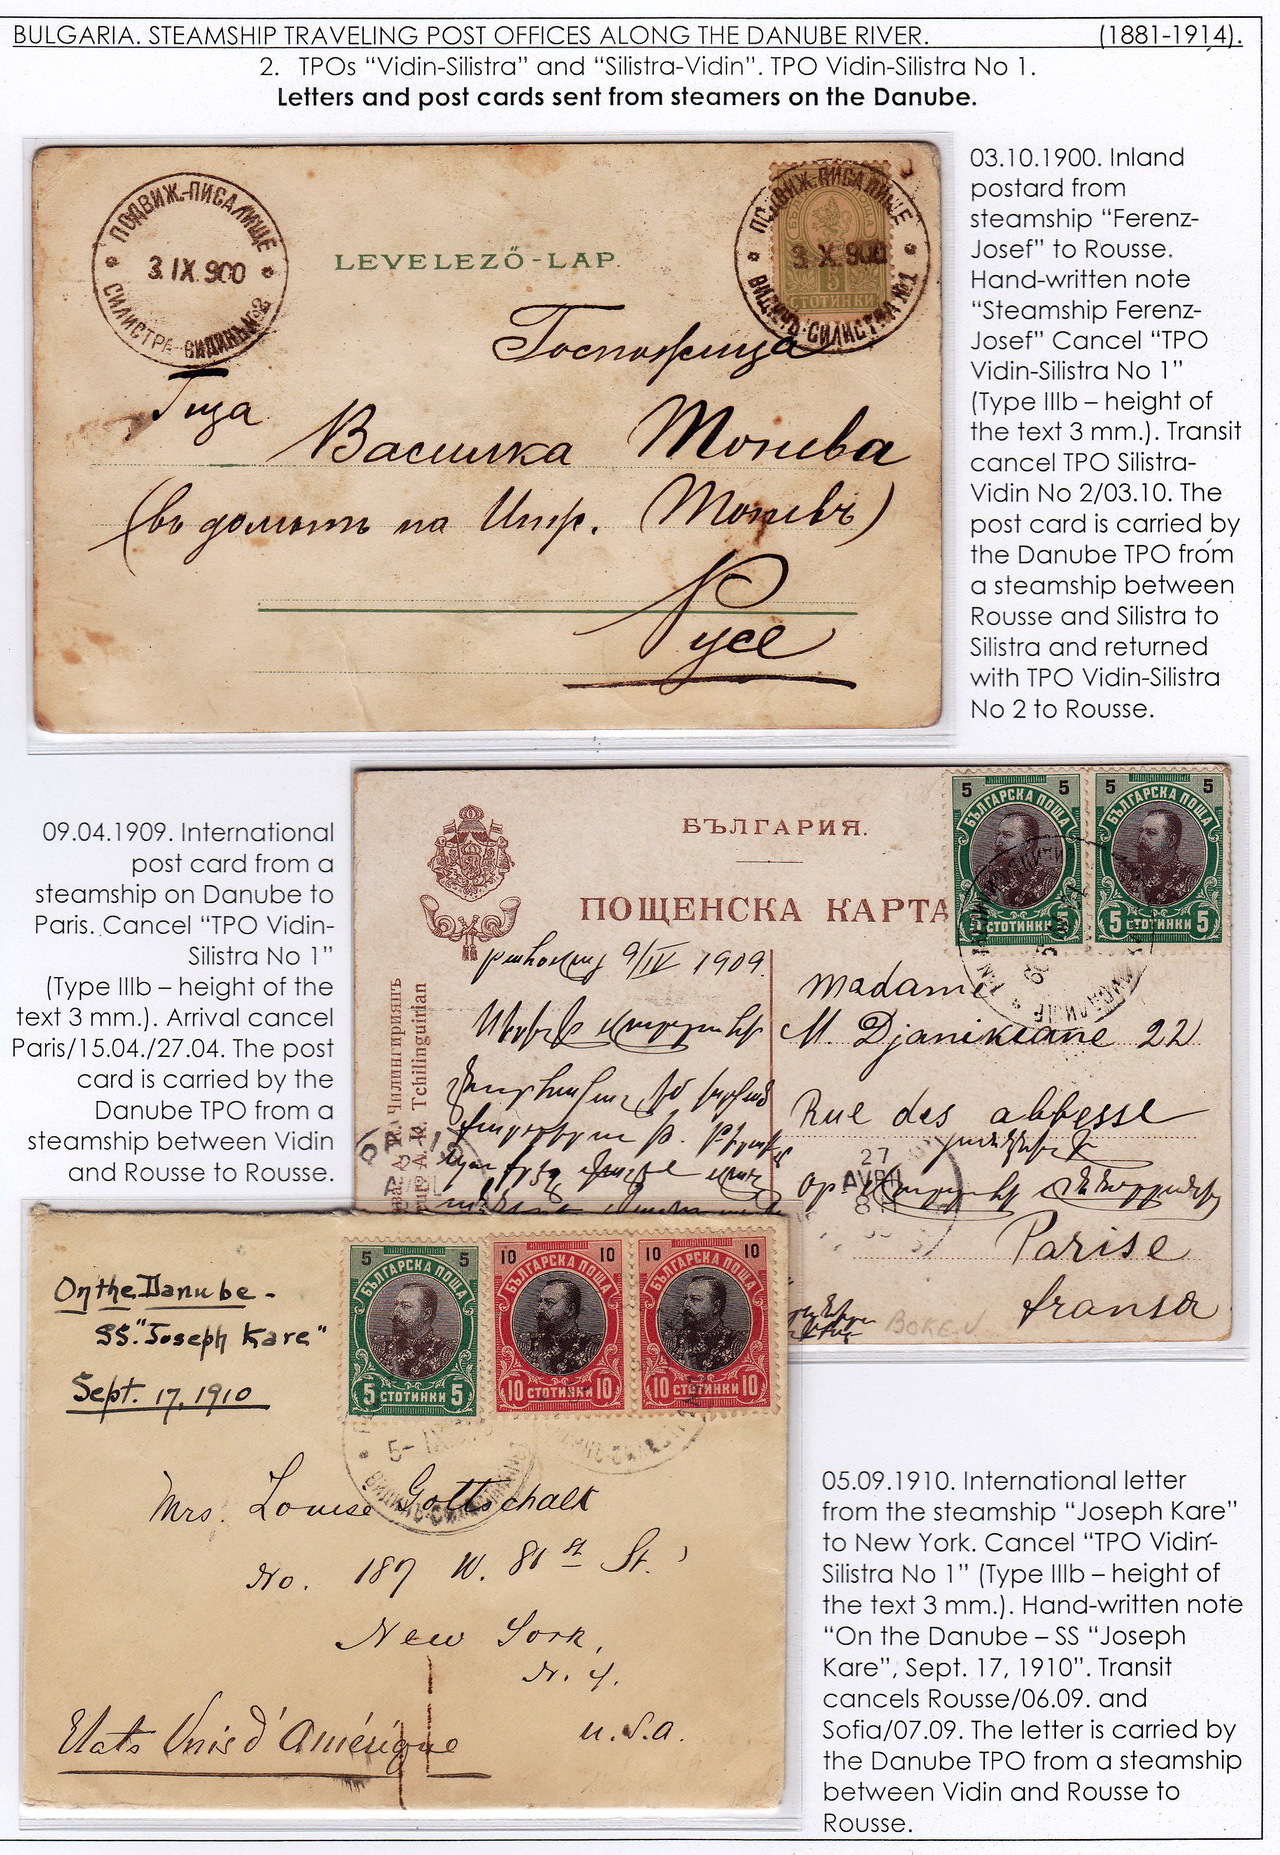 BULGARIA. STEAMSHIP TRAVELING POST OFFICES ALONG THE DANUBE RIVER. (1881-1914).
2. TPOs “Vidin-Silistra” and “Silistra-Vidin”. TPO Vidin-Silistra No 1.
Letters and post cards sent from steamers on the Danube.
ПОДВИЖ.-ПИСАЛИЩЕ
3. IX. 900
СИЛИСТРА-ВИДИНЪ №2
LEVELEZŐ-LAP.
ПОДВИЖ.-ПИСАЛИЩЕ
3. X. 900
ВИДИНЪ-СИЛИСТРА №1
5
СТОТИНКИ
Госпожица
Василка
(въ домътъ на
Русе
03.10.1900. Inland
postard from
steamship “Ferenz-
Josef” to Rousse.
Hand-written note
“Steamship Ferenz-
Josef” Cancel “TPO
Vidin-Silistra No 1”
(Type IIIb – height of
the text 3 mm.). Transit
cancel TPO Silistra-
Vidin No 2/03.10. The
post card is carried by
the Danube TPO from
a steamship between
Rousse and Silistra to
Silistra and returned
with TPO Vidin-Silistra
No 2 to Rousse.
09.04.1909. International
post card from a
steamship on Danube to
Paris. Cancel “TPO Vidin-
Silistra No 1”
(Type IIIb – height of the
text 3 mm.). Arrival cancel
Paris/15.04./27.04. The post
card is carried by the
Danube TPO from a
steamship between Vidin
and Rousse to Rousse.
БЪЛГАРИЯ.
ПОЩЕНСКА КАРТА
5 5
БЪЛГАРСКА ПОЩА
5 СТОТИНКИ 5
5 5
БЪЛГАРСКА ПОЩА
5 СТОТИНКИ 5
Чилингириянъ
Tchilinguirian
9/IV 1909.
Madame
M. Djanikiane 22
Rue des abbesse
27
AVRIL
Parise
fransa
On the Danube -
SS. "Joseph Kare"
Sept. 17, 1910
5 5
БЪЛГАРСКА ПОЩА
5 СТОТИНКИ 5
10 10
БЪЛГАРСКА ПОЩА
10 СТОТИНКИ 10
10 10
БЪЛГАРСКА ПОЩА
10 СТОТИНКИ 10
Mrs. Louise Gottschalk
No. 187 W. 81st St.
New York,
N. Y.
U.S.A.
Etats Unis d'Amérique
05.09.1910. International letter
from the steamship “Joseph Kare”
to New York. Cancel “TPO Vidin-
Silistra No 1” (Type IIIb – height of
the text 3 mm.). Hand-written note
“On the Danube – SS “Joseph
Kare”, Sept. 17, 1910”. Transit
cancels Rousse/06.09. and
Sofia/07.09. The letter is carried by
the Danube TPO from a steamship
between Vidin and Rousse to
Rousse.